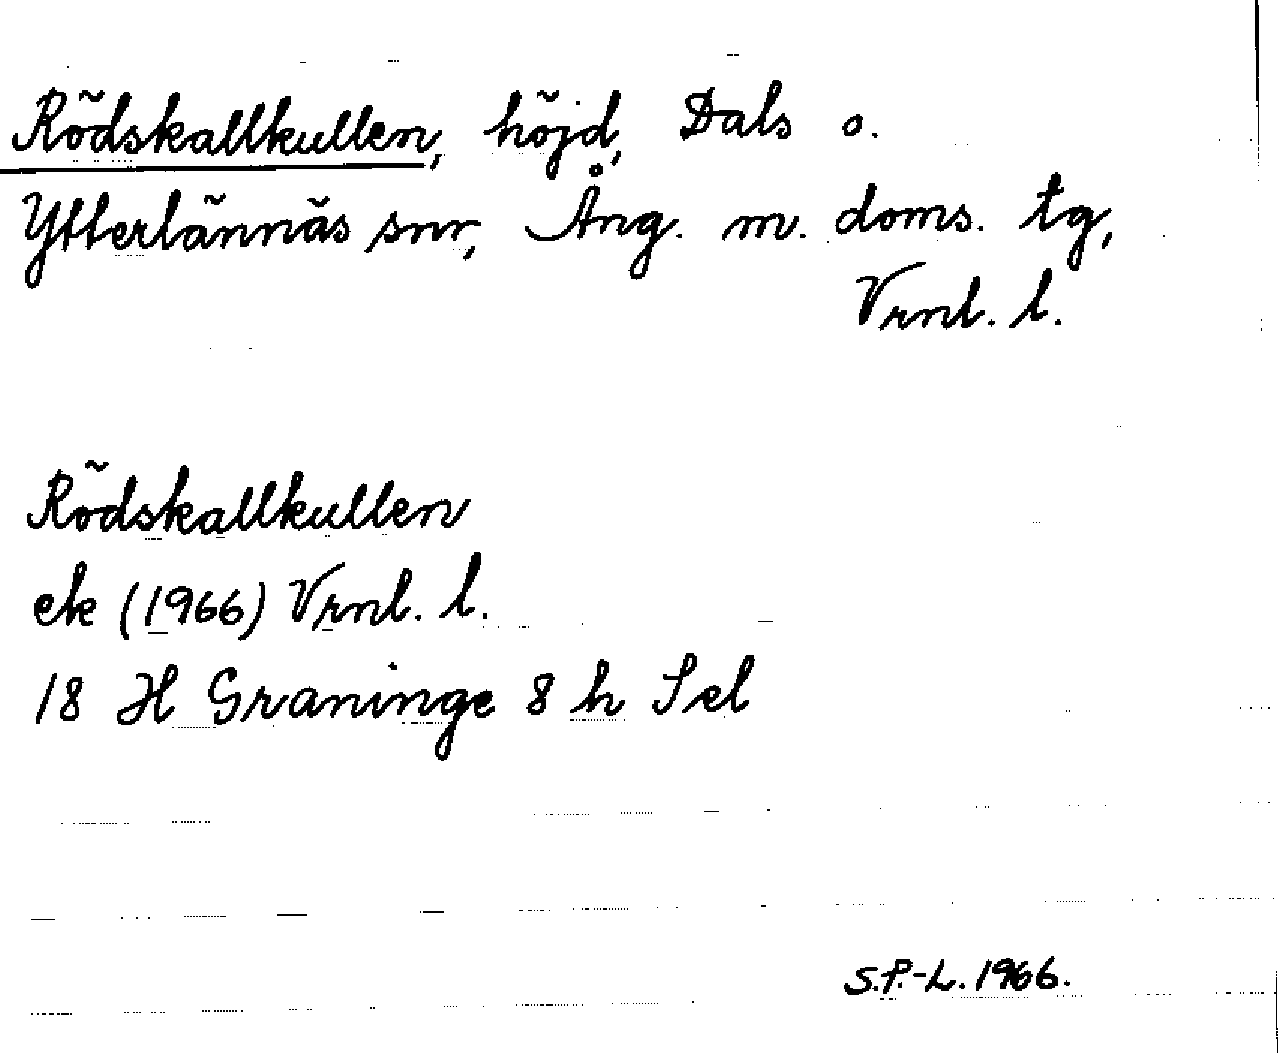 Rödskallkullen, höjd, Dals o.
Ytterlännäs snr, Ång. m. doms. tg,
Vrnl. l.
Rödskallkullen
ek (1966) Vrnl. l.
18 H Graninge 8 h Sel
S.P.-L. 1966.